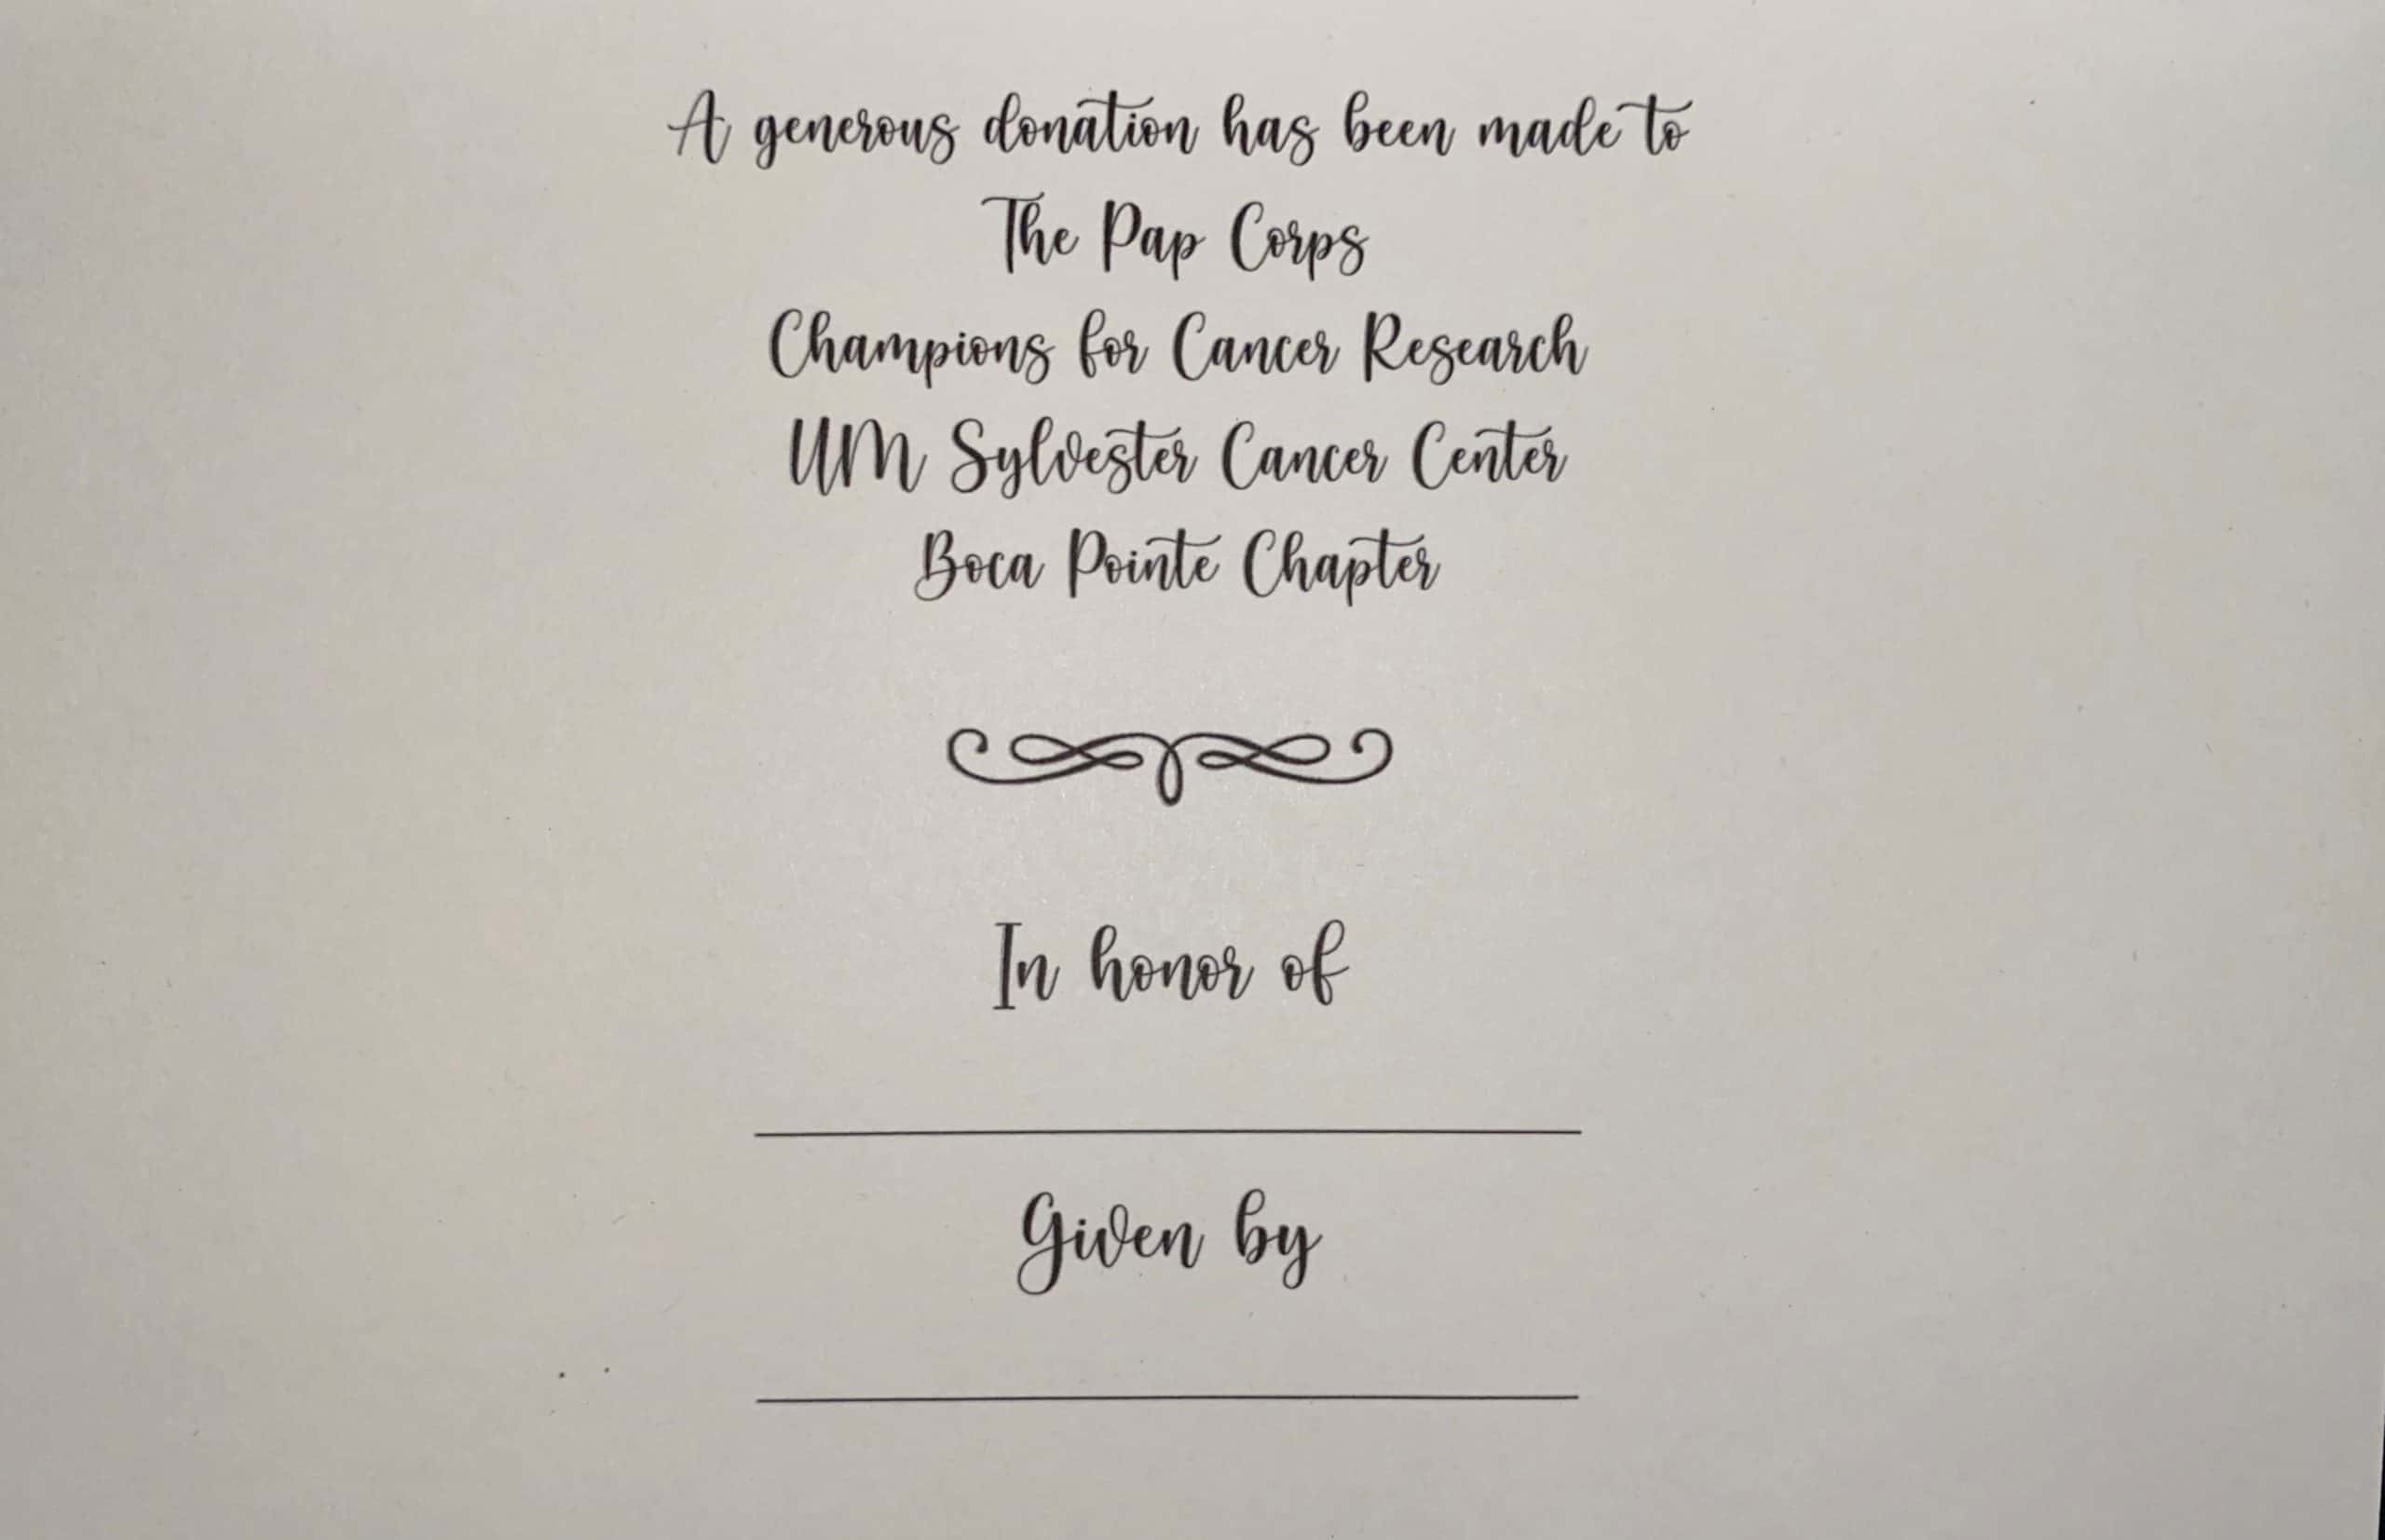 A generous donation has been made to
The Pap Corps
Champions for Cancer Research
UM Sylvester Cancer Center
Boca Pointe Chapter
In honor of
Given by